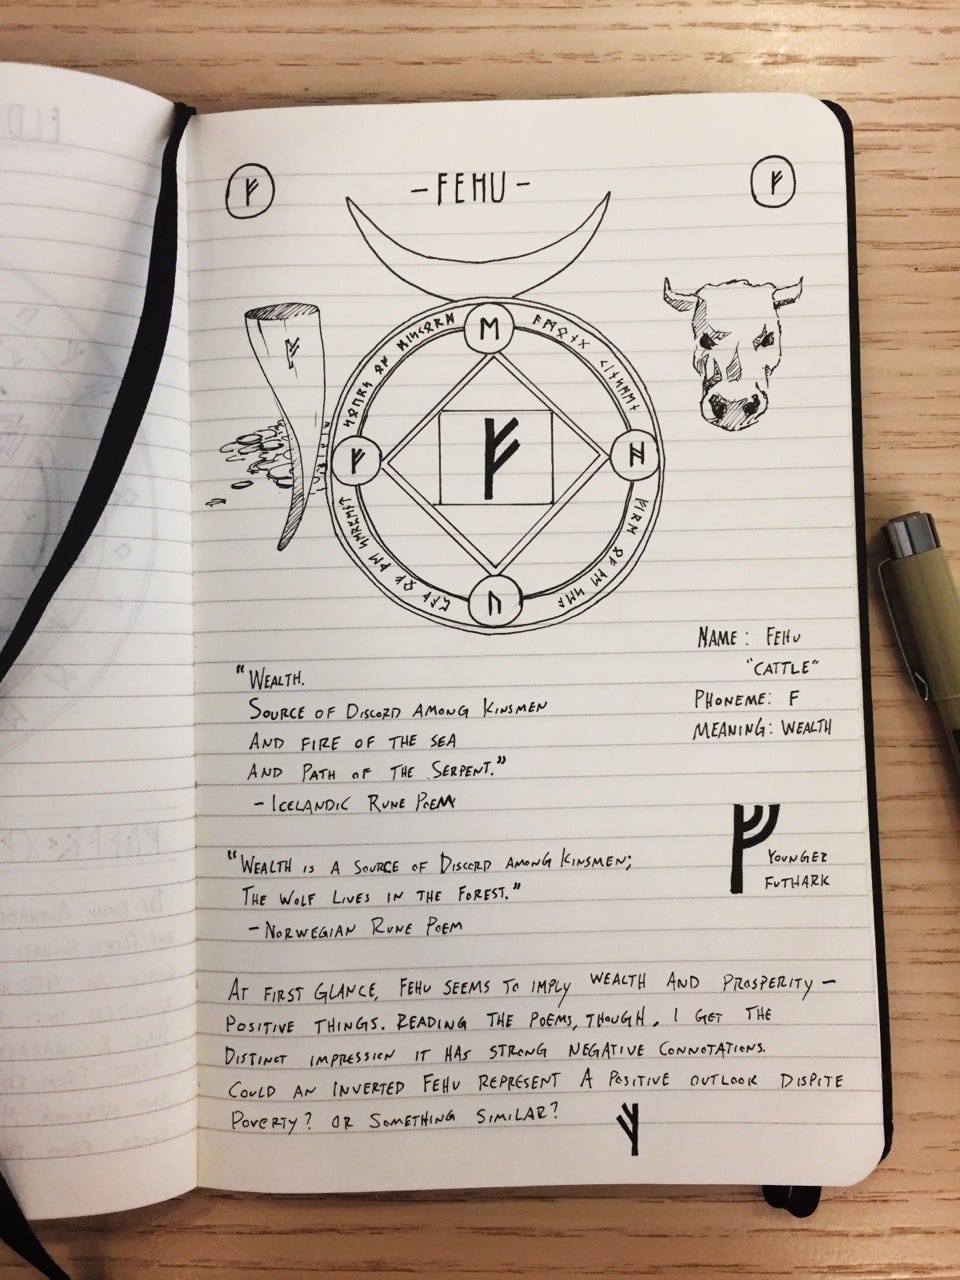 ᚠ
-FEHU-
ᚠ
ᚠ
ᛖ
ᚠ
ᚠ
ᚺ
ᚢ
NAME: FEHU
"CATTLE"
PHONEME: F
MEANING: WEALTH
"WEALTH.
SOURCE OF DISCORD AMONG KINSMEN
AND FIRE OF THE SEA
AND PATH OF THE SERPENT."
-ICELANDIC RUNE POEM
YOUNGER
FUTHARK
"WEALTH IS A SOURCE OF DISCORD AMONG KINSMEN;
THE WOLF LIVES IN THE FOREST."
-NORWEGIAN RUNE POEM
AT FIRST GLANCE, FEHU SEEMS TO IMPLY WEALTH AND PROSPERITY —
POSITIVE THINGS. READING THE POEMS, THOUGH, I GET THE
DISTINCT IMPRESSION IT HAS STRONG NEGATIVE CONNOTATIONS.
COULD AN INVERTED FEHU REPRESENT A POSITIVE OUTLOOK DISPITE
POVERTY? OR SOMETHING SIMILAR?